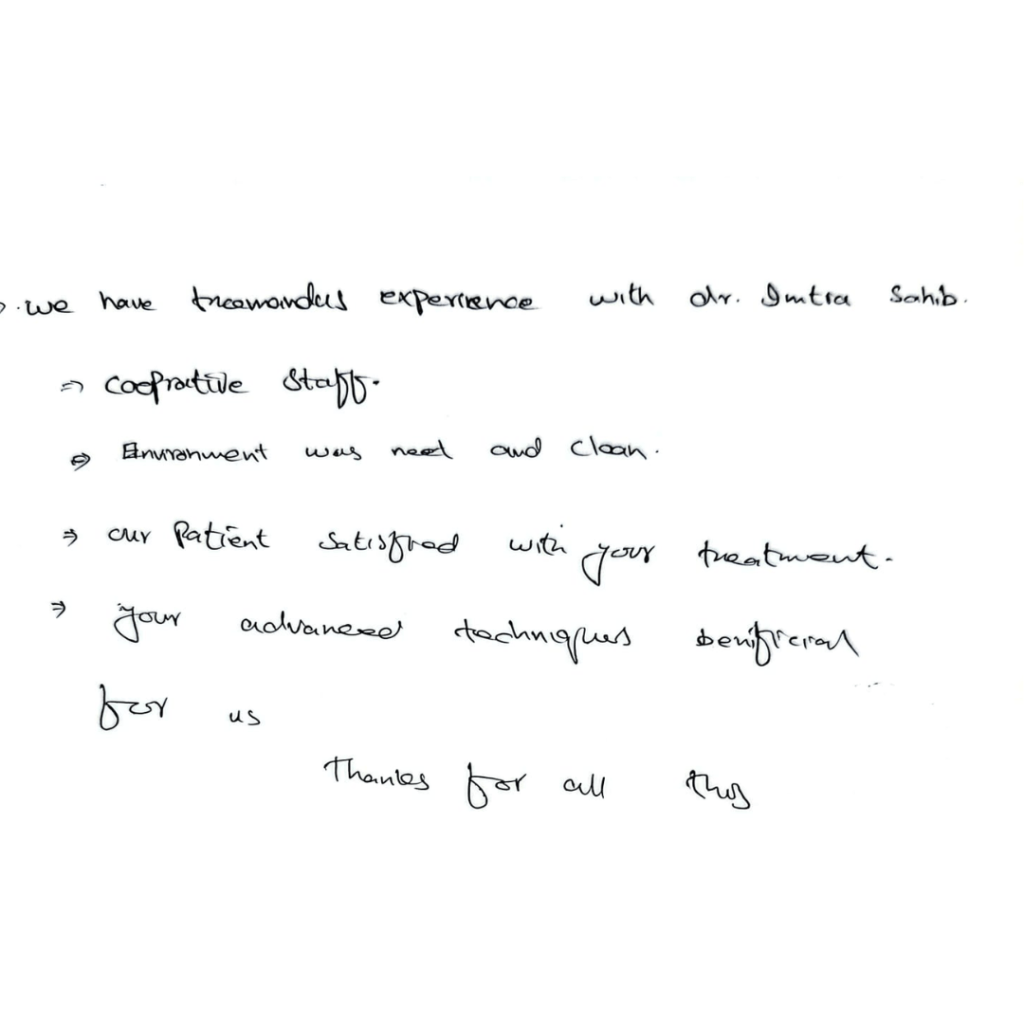 → we have treamondus experience with dr. Imtra Sahib.
⇒ Cooprative Staff.
⇒ Environment was need and Clean.
⇒ our Patient satisfied with your treatment.
⇒ your advanced techniques benificial
for us
Thanks for all this